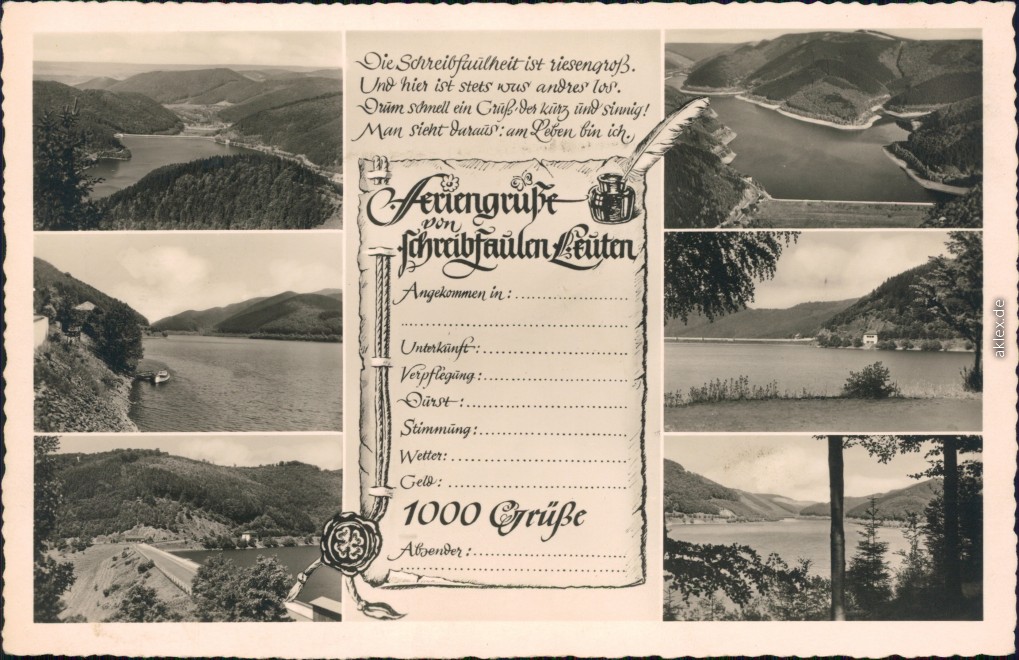 Die Schreibfaulheit ist riesengroß.
Und hier ist stets was andres los.
Drum schnell ein Gruß, der kurz und sinnig!
Man sieht daraus: am Leben bin ich.
Feriengrüße
von
schreibfaulen Leuten
Angekommen in:
Unterkunft:
Verpflegung:
Durst:
Stimmung:
Wetter:
Geld:
1000 Grüße
Absender:
aklex.de